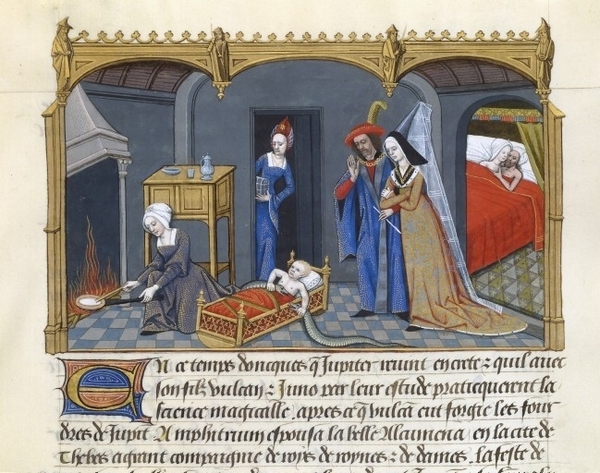 En ce temps doncques q̃ Jupiter vivint en crete z quil avoit
son filz vulcan z Juno par leur estude practiquerent la
science magicalle, apres ce q̃ vulcã eut forgie les four
dres de Jupit Amphitrium espousa la belle Alcumena en la cite de
Thebes a grant compaignie de roys de roynes z de dames. la feste de